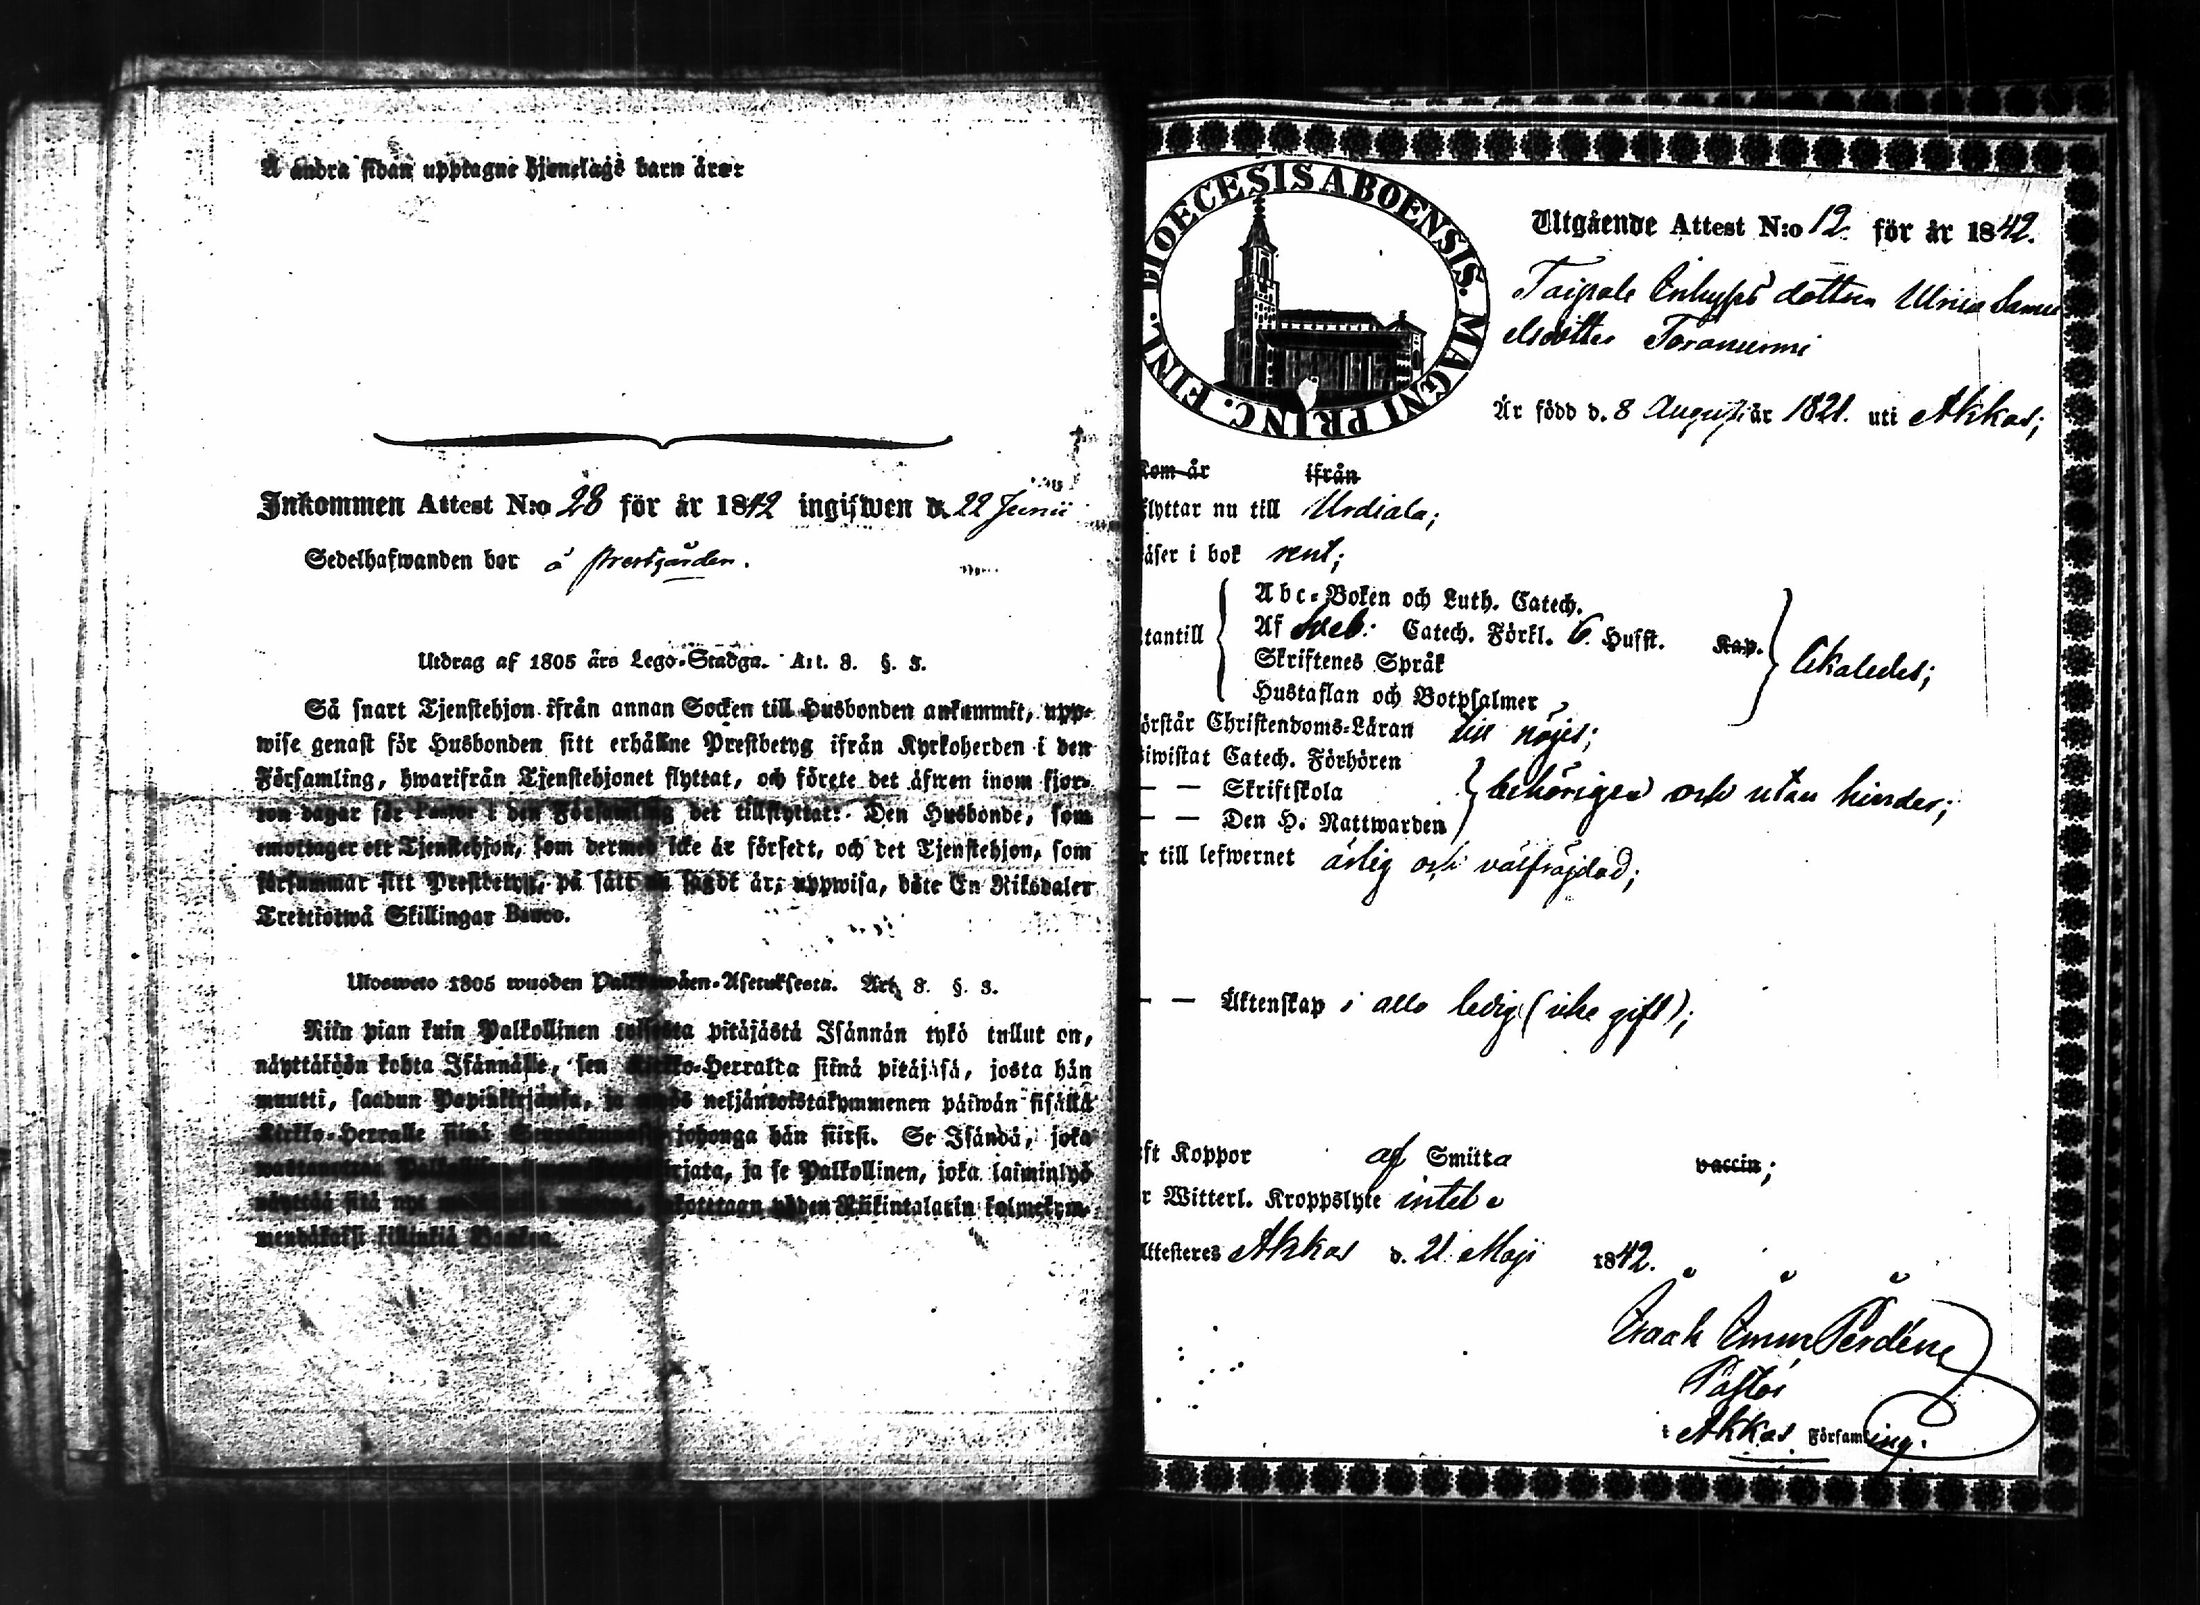 A andra sidan upptagne hjonelags barn äro:
Inkommen Attest N:o 28 för år 1842 ingifwen d. 22 Junii
Sedelhafwanden bor å Prestgården.
Utdrag af 1805 års Lego-Stadga. Art. 8. §. 3.
Så snart Tjenstehjon ifrån annan Socken till Husbonden ankommit, upp-
wise genast för Husbonden sitt erhållne Prestbetyg ifrån Kyrkoherden i den
Församling, hwarifrån Tjenstehjonet flyttat, och förete det äfwen inom fjor-
ton dagar för Pastor i den Församling det tillflyttat: Den Husbonde, som
emottager ett Tjenstehjon, som dermed icke är försedt, och det Tjenstehjon, som
försummar sitt Prestbetyg, på sätt nu sagdt är, uppwisa, böte En Riksdaler
Trettiotwå Skillingar Banco.
Ulosweto 1805 wuoden Palkkawäen-Asetuksesta. Art. 8. §. 3.
Niin pian kuin Palkollinen toisesta pitäjästä Isännän tykö tullut on,
näyttäköön kohta Isännälle, sen Kirkko-Herralta siinä pitäjäsä, josta hän
muutti, saadun Papinkirjansa, ja myös neljäntoistakymmenen päiwän sisällä
Kirkko-Herralle siinä johonga hän siirsi. Se Isändä, joka
ja se Palkollinen, joka laiminlyö
näyttää sitä nyt Riikintalarin kolmekym-
mendäkaksi killinkiä Bankoa.
DIOECESIS ABOENSIS. MAGNI PRINC. FINL.
Utgående Attest N:o 12 för år 1842.
Taipale dottren Ulrica Samu
elsdotter
Är född d. 8 Augusti år 1821. uti Akkas;
Kom år ifrån
flyttar nu till Urdiala;
läser i bok rent;
Utantill
Abc-Boken och Luth. Catech.
Af Sveb: Catech. Förkl. 6 Hufst. Kap.
Skriftenes Språk
Hustaflan och Botpsalmer
likaledes;
förstår Christendoms-Läran till nöjes;
biwistat Catech. Förhören
— — Skriftskola
— — Den H. Nattwarden
behörigen och utan hinder;
r till lefwernet ärlig och välfräjdad;
— — Äktenskap i allo ledig (icke gift);
ft Koppor af Smitta vaccin;
r Witterl. Kroppslyte intet
Attesteres Akkas d. 21 Maji 1842.
Isaak Emm
Pastor
i Akkas Församling.